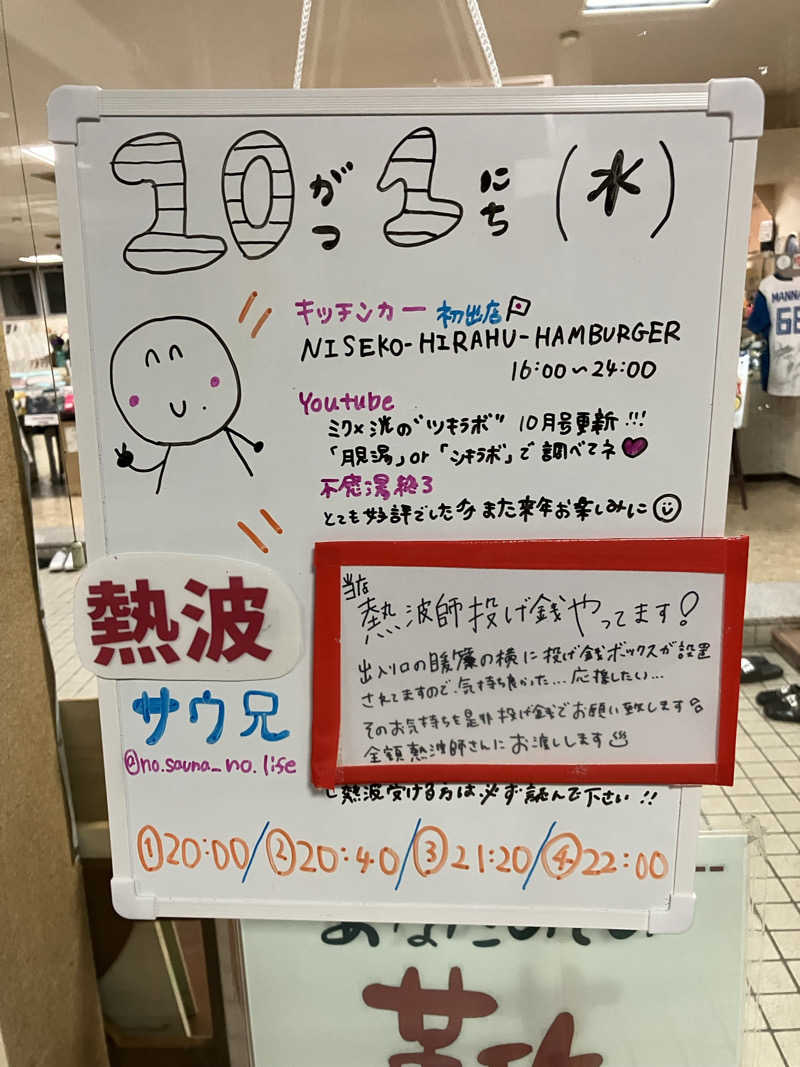 10がつ1にち(水)
キッチンカー 初出店
NISEKO-HIRAHU-HAMBURGER
16:00〜24:00
Youtube
ミク×洸の"ツキラボ" 10月号更新!!!
「月見湯」or「ツキラボ」で調べてネ
不感湯終了
とても好評でした また来年お楽しみに
熱波
サウ兄
@no.sauna_no.life
当店
熱波師投げ銭やってます!
出入り口の暖簾の横に投げ銭ボックスが設置
されてますので、気持ち良かった…応援したい…
そのお気持ちを是非投げ銭でお願い致します
全額熱波師さんにお渡しします
熱波受ける方は必ず読んで下さい!!
①20:00/②20:40/③21:20/④22:00
MANNA
66